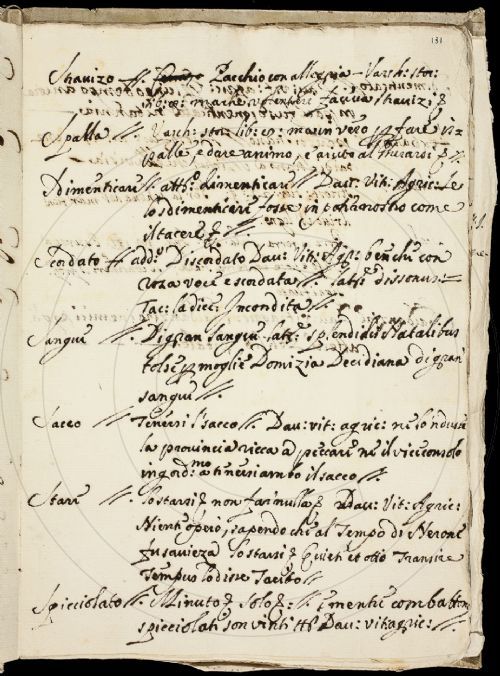 131
Stravizo //. Pacchio con allegria – Varch: stor:
Spalla //. Varch: stor: lib: ma in vero p fare
spalle, e dare animo, e aiuto al
Sdimenticare //. att.º dimenticare //. Dav: Vit: Agric: se
lo sdimenticare fosse in poter nostro come
il tacere //.
Scordato // add.º Discordato Dav: Vit: Agr: benchè con
roza voce e scordata //. lat.º dissonus:
Tac: la dice Incondita //.
Sangue //. Di gran sangue lat.º splendidis Natalibus
tolse p moglie Domizia Decidiana di gran
sangue //.
Sacco //. Tenersi l'sacco //. Dav: vit: agric: ne lo indusse
la provincia ricca a peccare ne il viceconsolo
ingord.mo a tenersi ambo il sacco //.
Stare //. Lo starsi non far nulla Dav: Vit: Agric:
Niente operò, sapendo che al Tempo di Nerone
fu savieza lo starsi Quiete et otio Transire
Tempus lo disse Tacito //
Spicciolato //. Minuto solo //. e mentre combatton
spicciolati son vinti tti Dav: vit: agric: //.